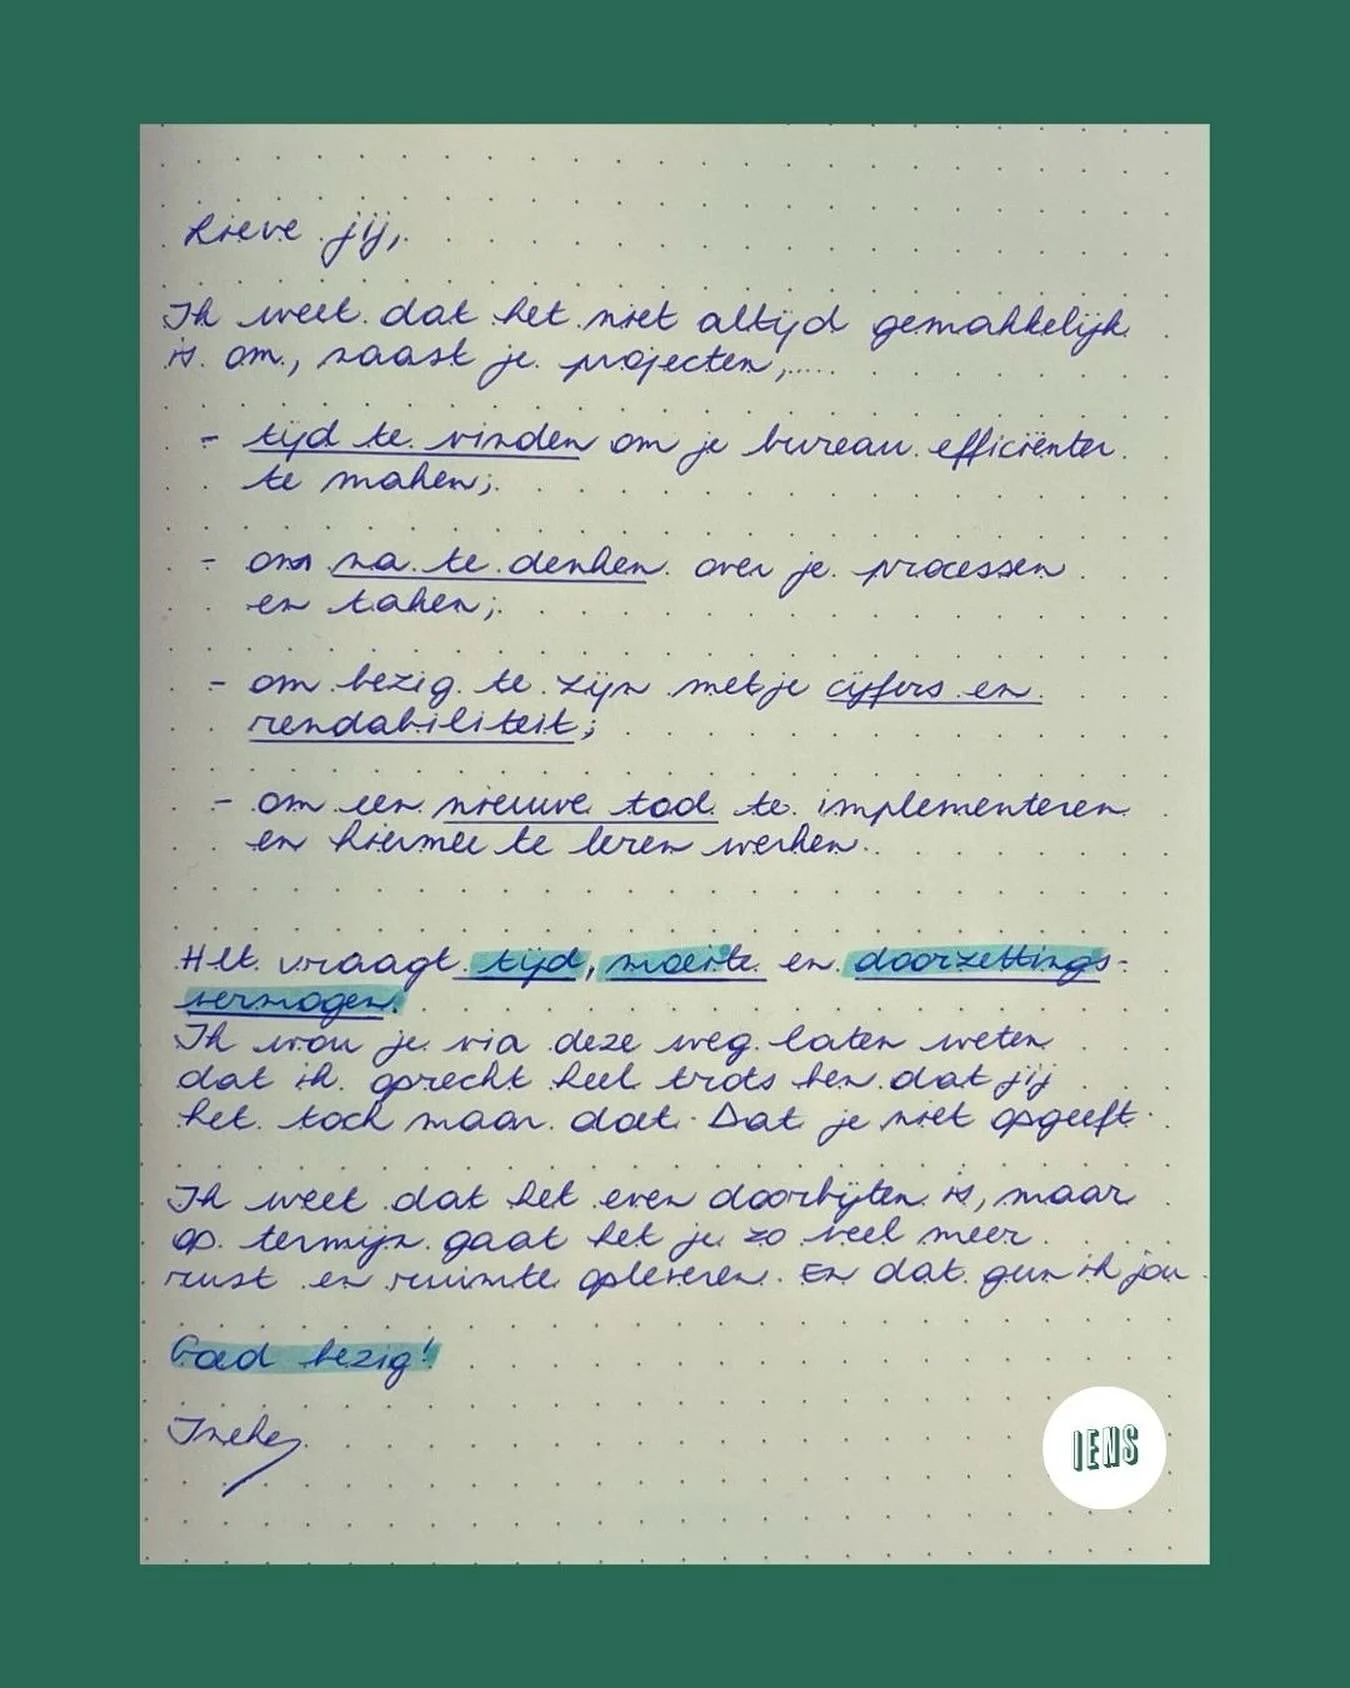 Lieve jij,
Ik weet dat het niet altijd gemakkelijk
is om, naast je projecten,.....
- tijd te vinden om je bureau efficiënter
te maken;
- om na te denken over je processen
en taken;
- om bezig te zijn met je cijfers en
rendabiliteit;
- om een nieuwe tool te implementeren
en hiermee te leren werken.
Het vraagt tijd, moeite en doorzettings-
vermogen.
Ik wou je via deze weg laten weten
dat ik oprecht heel trots ben dat jij
het toch maar doet. Dat je niet opgeeft.
Ik weet dat het even doorbijten is, maar
op termijn gaat het je zo veel meer
rust en ruimte opleveren. En dat gun ik jou.
Goed bezig!
Ineke
IENS